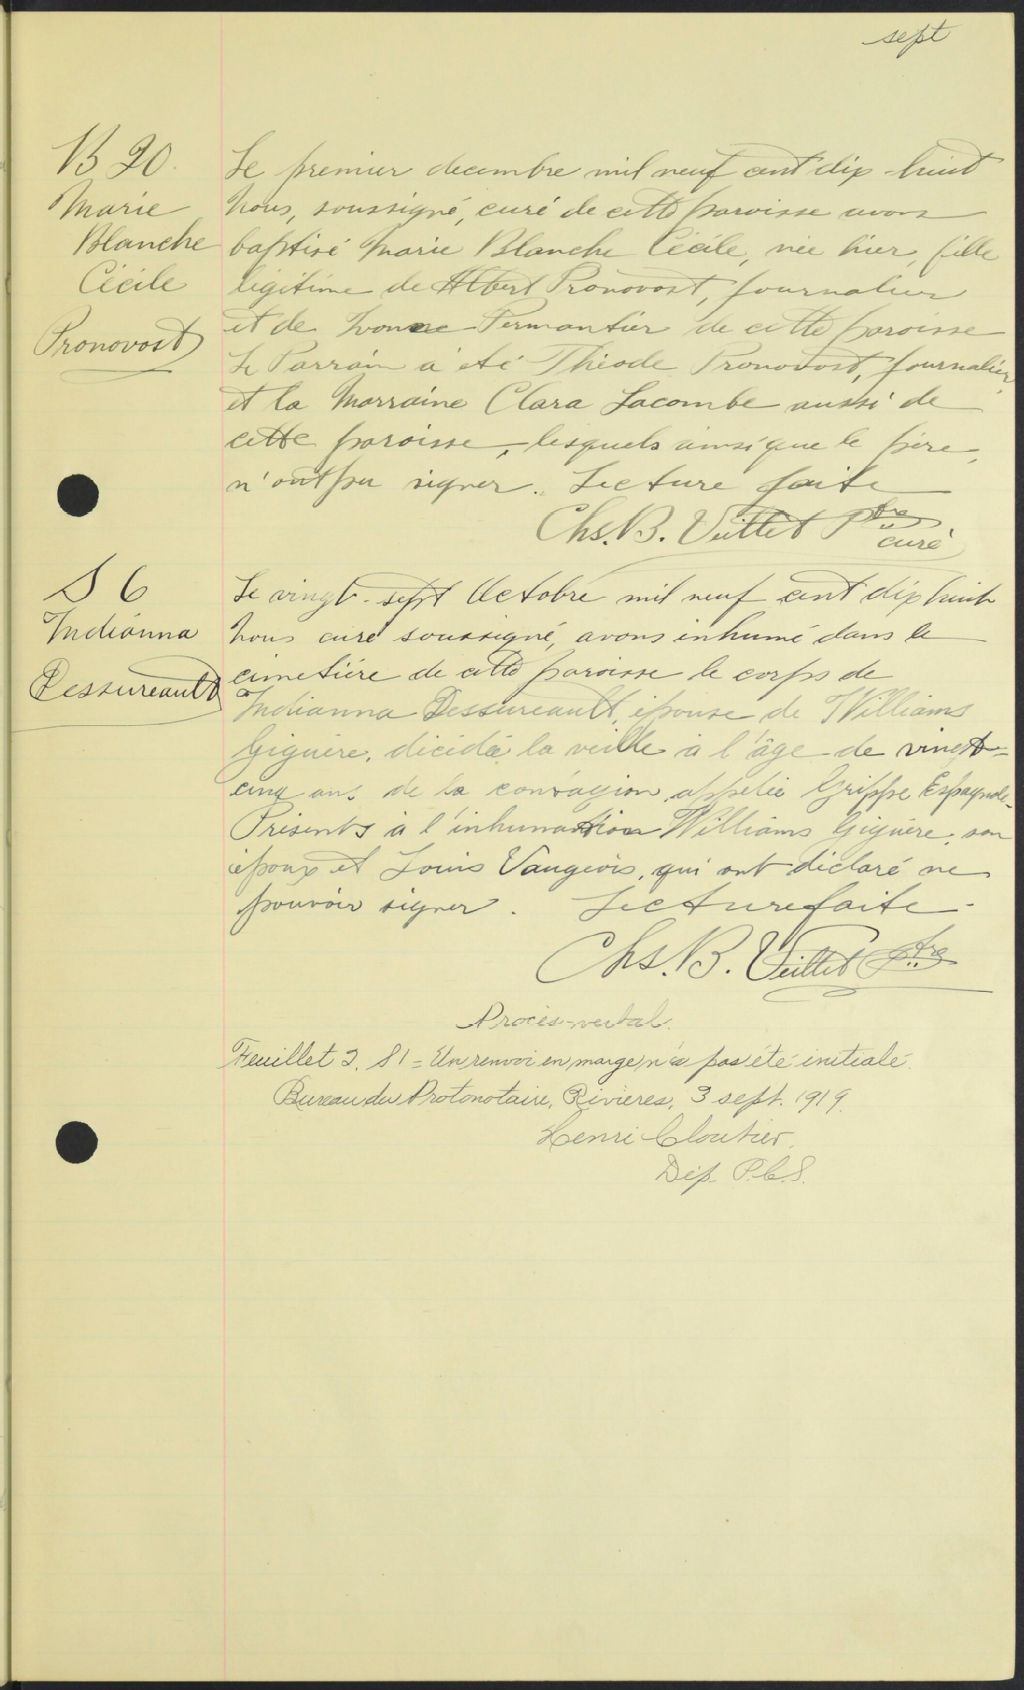 sept
B 20.
Marie
Blanche
Cécile
Pronovost
Le premier decembre mil neuf cent dix-huit
Nous, soussigné, curé de cette paroisse avons
baptisé Marie Blanche Cécile, née hier, fille
légitime de Albert Pronovost, journalier
et de Yvonne Permantier de cette paroisse
Le Parrain a été Théode Pronovost, journalier,
et la Marraine Clara Lacombe aussi de
cette paroisse, lesquels ainsi que le père,
n'ont pu signer. Lecture faite
Chs. B. Veillet Ptre
curé
S 6
Indianna
Dessureault
Le vingt-sept Octobre mil neuf cent dix huit
Nous curé soussigné, avons inhumé dans le
cimetière de cette paroisse le corps de
Indianna Dessureault, épouse de Williams
Giguère, décédée la veille à l'âge de vingt-
cinq ans de la contagion appelée Grippe Espagnole.
Présents à l'inhumation Williams Giguère, son
époux et Louis Vaugeois, qui ont déclaré ne
pouvoir signer. Lecture faite.
Chs. B. Veillet Ptre
Procès-verbal.
Feuillet 2. S1 = Un renvoi en marge n'a pas été initialé.
Bureau du Protonotaire, Rivières, 3 sept. 1919.
Henri Cloutier,
Dép. P.C.S.